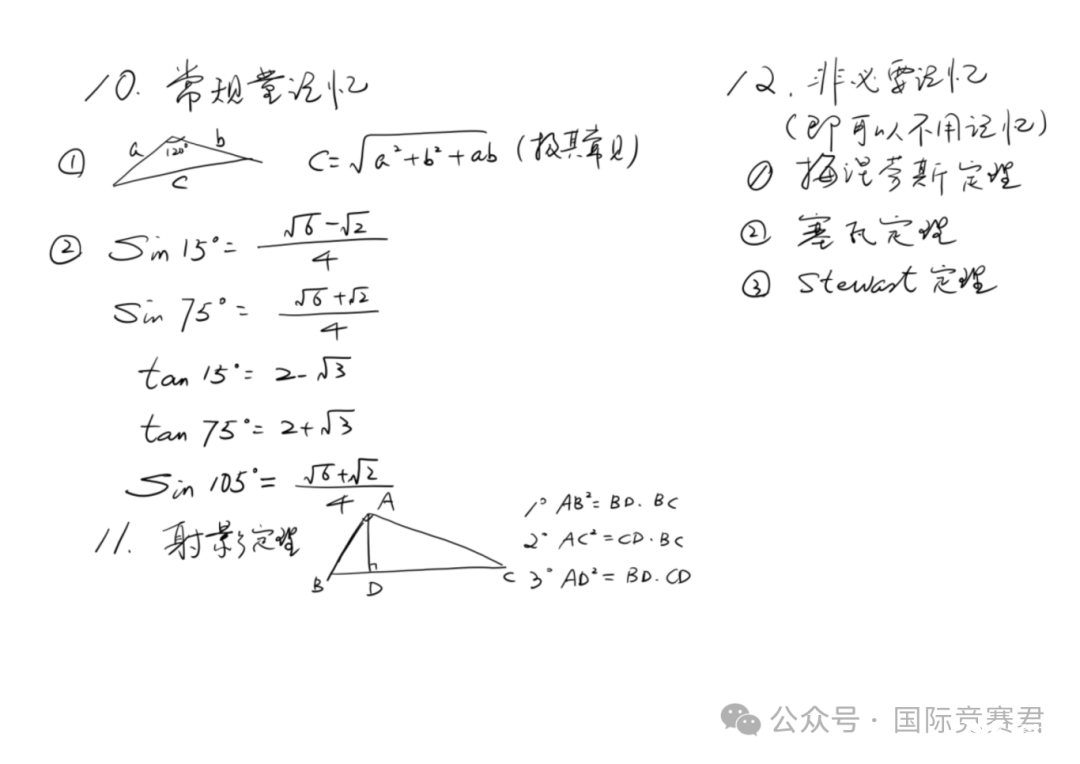 10. 常规堂记忆
① a 120° b c C=√(a²+b²+ab) (极其常见)
② Sin 15°= (√6-√2)/4
Sin 75°= (√6+√2)/4
tan 15°= 2-√3
tan 75°= 2+√3
Sin 105°= (√6+√2)/4
11. 射影定理
A B D C
1° AB²=BD·BC
2° AC²=CD·BC
3° AD²=BD·CD
12. 非必要记忆
(即可以不用记忆)
① 梅涅劳斯定理
② 塞瓦定理
③ Stewart 定理
公众号·国际竞赛君